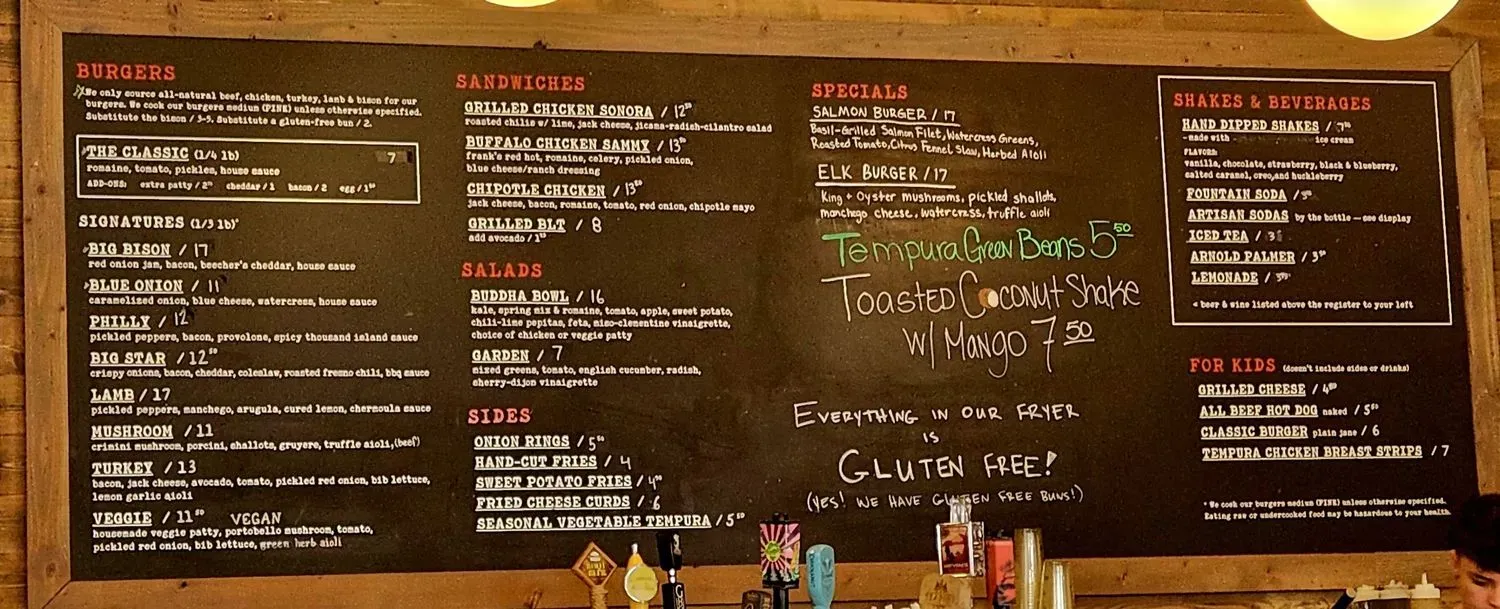 BURGERS
We only source all-natural beef, chicken, turkey, lamb & bison for our
burgers. We cook our burgers medium (PINK) unless otherwise specified.
Substitute the bison / 3-5. Substitute a gluten-free bun / 2.
THE CLASSIC (1/4 lb) 7
romaine, tomato, pickles, house sauce
ADD-ONS: extra patty / 2 cheddar / 1 bacon / 2 egg / 1
SIGNATURES (1/3 lb)
BIG BISON / 17
red onion jam, bacon, beecher's cheddar, house sauce
BLUE ONION / 11
caramelized onion, blue cheese, watercress, house sauce
PHILLY / 12
pickled peppers, bacon, provolone, spicy thousand island sauce
BIG STAR / 12 50
crispy onions, bacon, cheddar, coleslaw, roasted fresno chili, bbq sauce
LAMB / 17
pickled peppers, manchego, arugula, cured lemon, chermoula sauce
MUSHROOM / 11
crimini mushroom, porcini, shallots, gruyere, truffle aioli, (beef)
TURKEY / 13
bacon, jack cheese, avocado, tomato, pickled red onion, bib lettuce,
lemon garlic aioli
VEGGIE / 11 50 VEGAN
housemade veggie patty, portobello mushroom, tomato,
pickled red onion, bib lettuce, green herb aioli
SANDWICHES
GRILLED CHICKEN SONORA / 12 50
roasted chilis w/ lime, jack cheese, jicama-radish-cilantro salad
BUFFALO CHICKEN SAMMY / 13 50
frank's red hot, romaine, celery, pickled onion,
blue cheese/ranch dressing
CHIPOTLE CHICKEN / 13 50
jack cheese, bacon, romaine, tomato, red onion, chipotle mayo
GRILLED BLT / 8
add avocado / 1 50
SALADS
BUDDHA BOWL / 16
kale, spring mix & romaine, tomato, apple, sweet potato,
chili-lime pepitas, feta, miso-clementine vinaigrette,
choice of chicken or veggie patty
GARDEN / 7
mixed greens, tomato, english cucumber, radish,
sherry-dijon vinaigrette
SIDES
ONION RINGS / 5 50
HAND-CUT FRIES / 4
SWEET POTATO FRIES / 4
FRIED CHEESE CURDS / 6
SEASONAL VEGETABLE TEMPURA / 5 50
SPECIALS
SALMON BURGER / 17
Basil-Grilled Salmon Filet, Watercress Greens,
Roasted Tomato, Citrus Fennel Slaw, Herbed Aioli
ELK BURGER / 17
King + Oyster mushrooms, pickled shallots,
manchego cheese, watercress, truffle aioli
Tempura Green Beans 5 50
Toasted Coconut Shake
w/ Mango 7 50
EVERYTHING IN OUR FRYER
IS
GLUTEN FREE!
(YES! WE HAVE GLUTEN FREE BUNS!)
SHAKES & BEVERAGES
HAND DIPPED SHAKES / 7
- made with ice cream
FLAVORS:
vanilla, chocolate, strawberry, black & blueberry,
salted caramel, oreo, and huckleberry
FOUNTAIN SODA / 3
ARTISAN SODAS by the bottle — see display
ICED TEA / 3
ARNOLD PALMER / 3
LEMONADE / 3
beer & wine listed above the register to your left
FOR KIDS (doesn't include sides or drinks)
GRILLED CHEESE / 4 50
ALL BEEF HOT DOG naked / 5 50
CLASSIC BURGER plain jane / 6
TEMPURA CHICKEN BREAST STRIPS / 7
* We cook our burgers medium (PINK) unless otherwise specified.
Eating raw or undercooked food may be hazardous to your health.